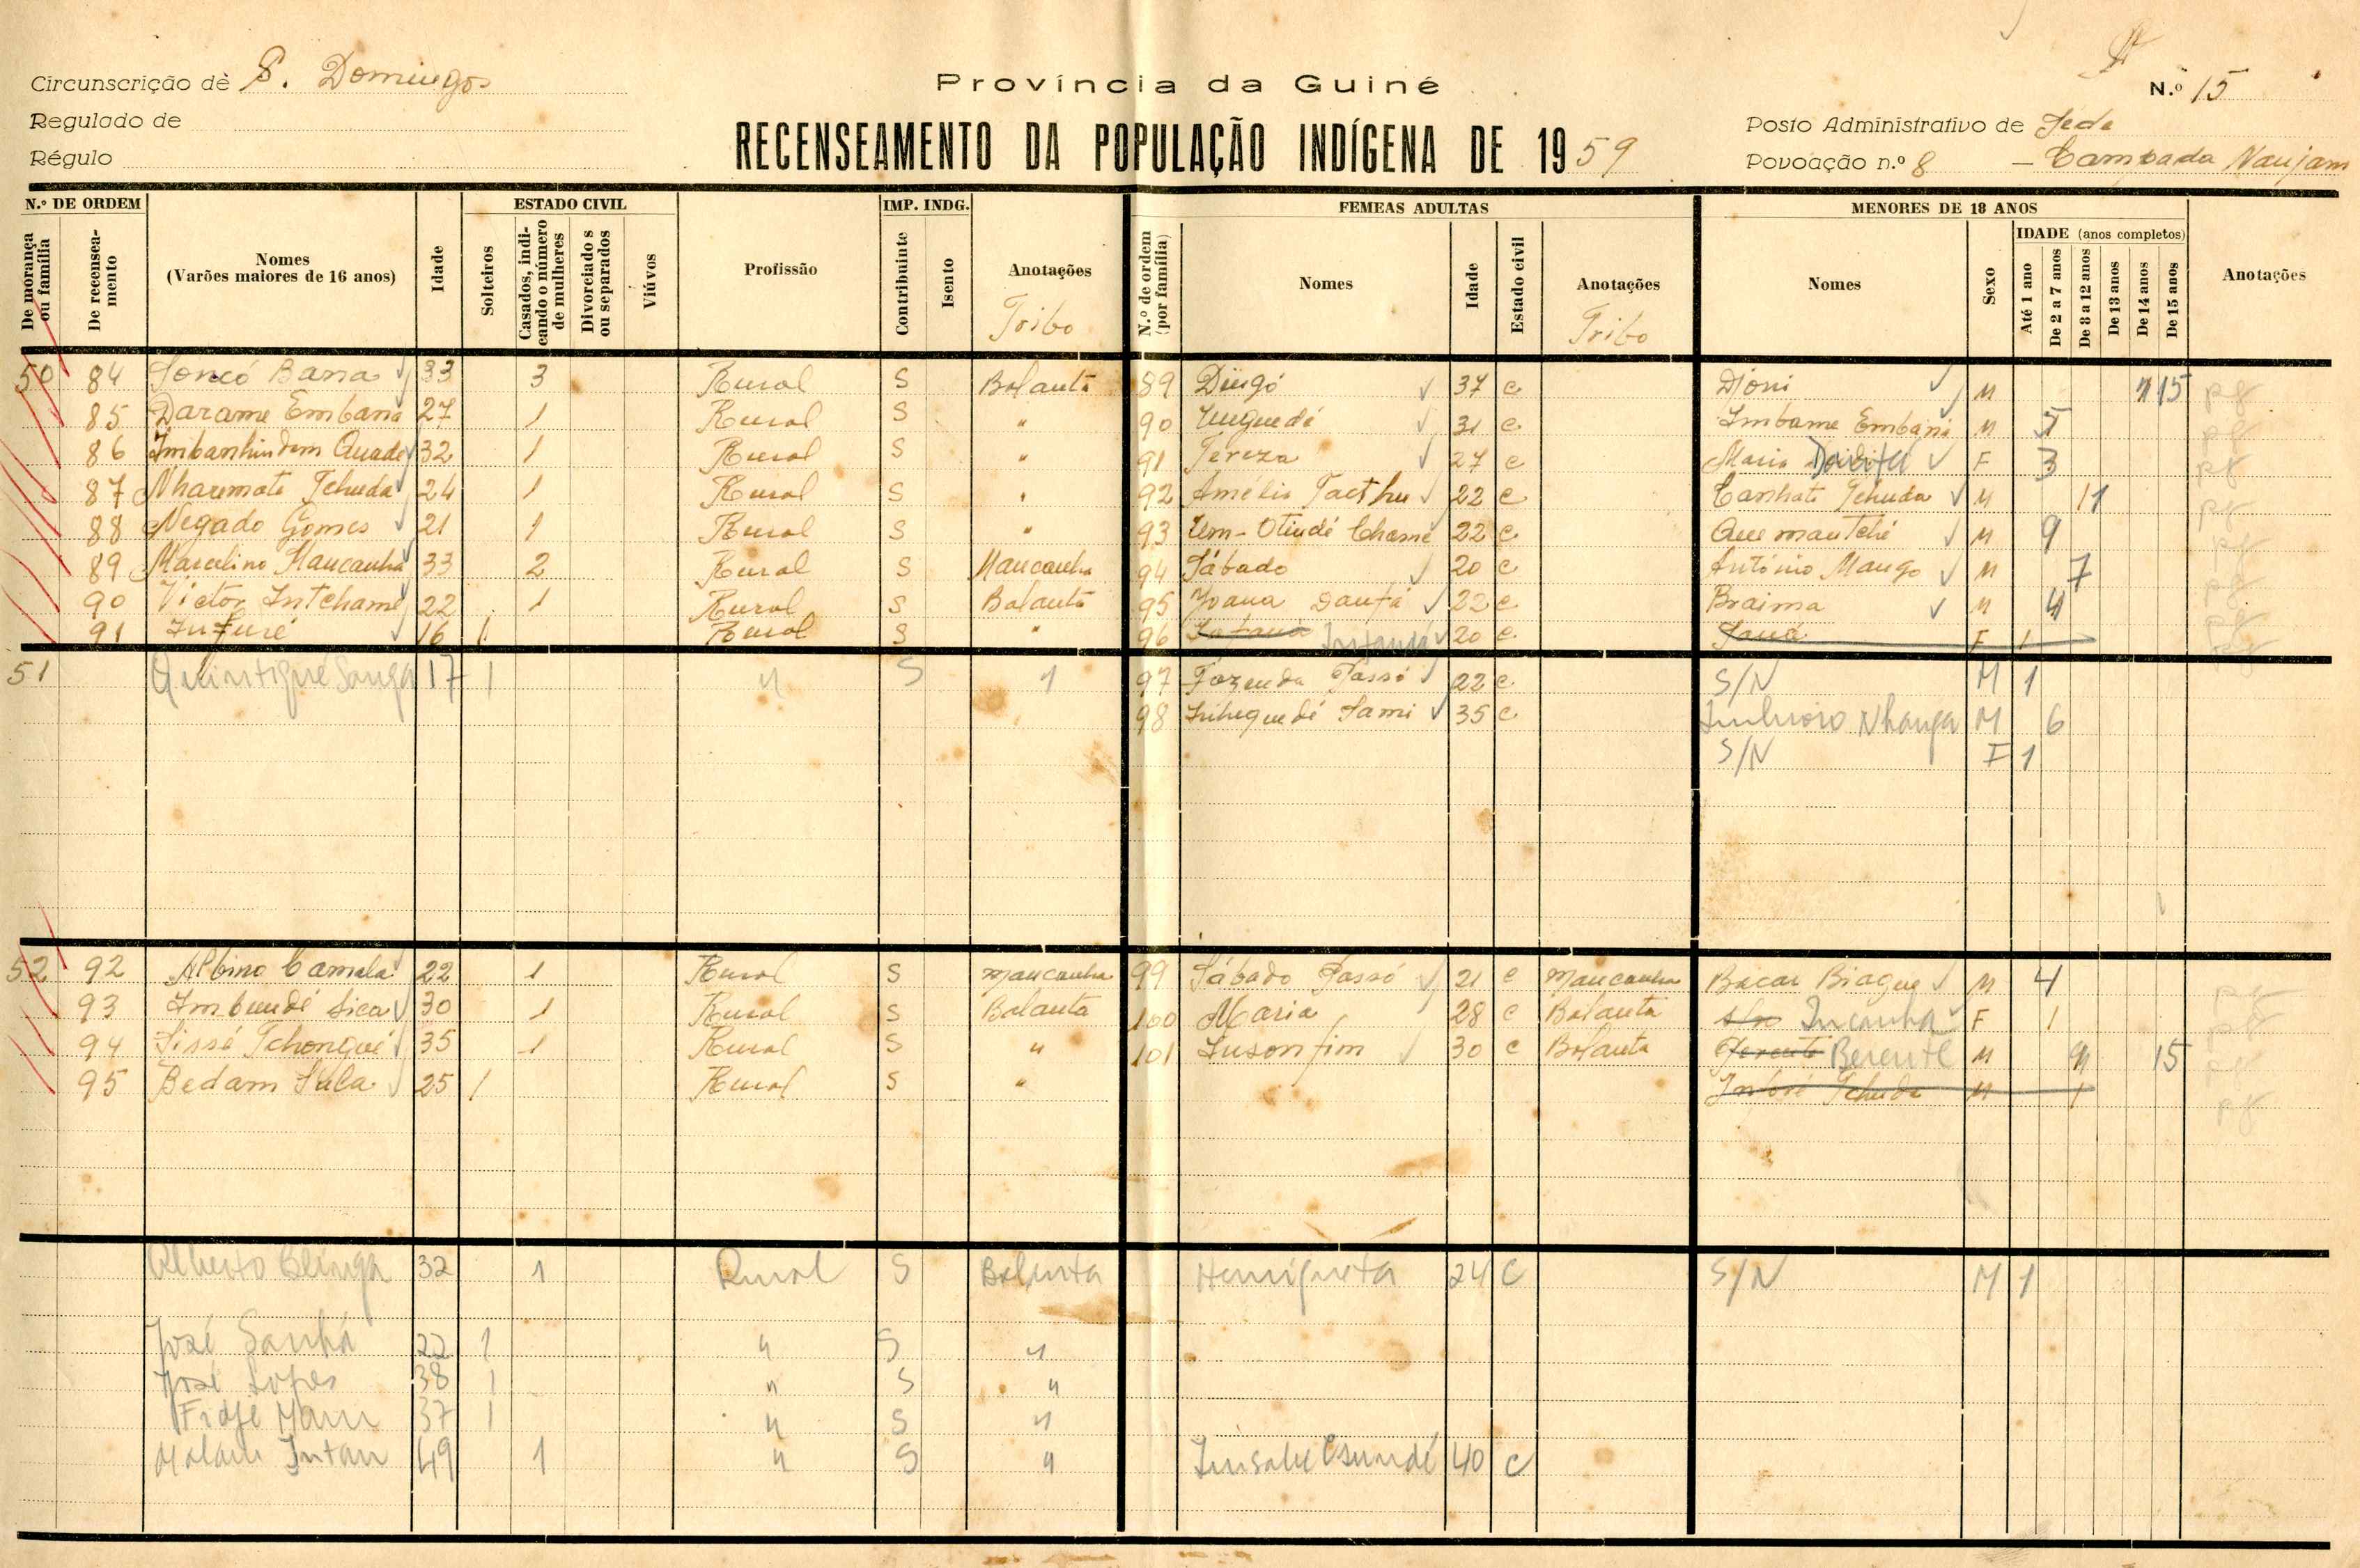 Circunscrição de S. Domingos
Regulado de
Régulo
Província da Guiné
RECENSEAMENTO DA POPULAÇÃO INDÍGENA DE 1959
N.º 15
Posto Administrativo de Sede
Povoação n.º 8 - Campada Naujam
N.º DE ORDEM
De morança ou família
De recenseamento
Nomes
(Varões maiores de 16 anos)
Idade
ESTADO CIVIL
Solteiros
Casados, indicando o número de mulheres
Divorciados ou separados
Viúvos
Profissão
IMP. INDG.
Contribuinte
Isento
Anotações
Tribo
FEMEAS ADULTAS
N.º de ordem (por família)
Nomes
Idade
Estado civil
Anotações
Tribo
MENORES DE 18 ANOS
Nomes
Sexo
IDADE (anos completos)
Até 1 ano
De 2 a 7 anos
De 8 a 12 anos
De 13 anos
De 14 anos
De 15 anos
Anotações
50 84 Soncó Bana 33 3 Rural S Balanta 89 Dingó 37 c Djoni M 15
85 Darame Embana 27 1 Rural S " 90 31 c Imbame Embana M
86 Imbanhindem Quade 32 1 Rural S " 91 Tereza 27 c Maria F 3
87 Nharemate Tchuda 24 1 Rural S " 92 Amélia 22 c Canhate Tchuda M 11
88 Negado Gomes 21 1 Rural S " 93 Um-Otindé Chamé 22 c Quemantché M 9
89 Marcelino Mancanha 33 2 Rural S Mancanha 94 Sábado 20 c António Mango M 7
90 Victor Intchame 22 1 Rural S Balanta 95 Joana Danfá 22 c Braima M 4
91 Infuré 16 1 Rural S " 96 20 c Saná F 1
51 Quintigue Sanga 17 1 " S " 97 Fazenda Passó 22 c S/N M 1
98 Sami 35 c Nhanga M 6
S/N F 1
52 92 Albino Camala 22 1 Rural S Mancanha 99 Sábado Passó 21 c Mancanha Bacar Biague M 4
93 Imbundé Sica 30 1 Rural S Balanta 100 Maria 28 c Balanta Incanha F 1
94 Sissé Tchongué 35 1 Rural S " 101 Insonfim 30 c Balanta Berente M 15
95 Bedam Sula 25 1 Rural S " Tchuda M 1
Alberto Clinga 32 1 Rural S Balanta Henriqueta 24 C S/N M 1
José Sanhá 22 1 " S "
José Lopes 38 1 " S "
Fidje Mam 37 1 " S "
Malam Intan 49 1 " S " 40 C